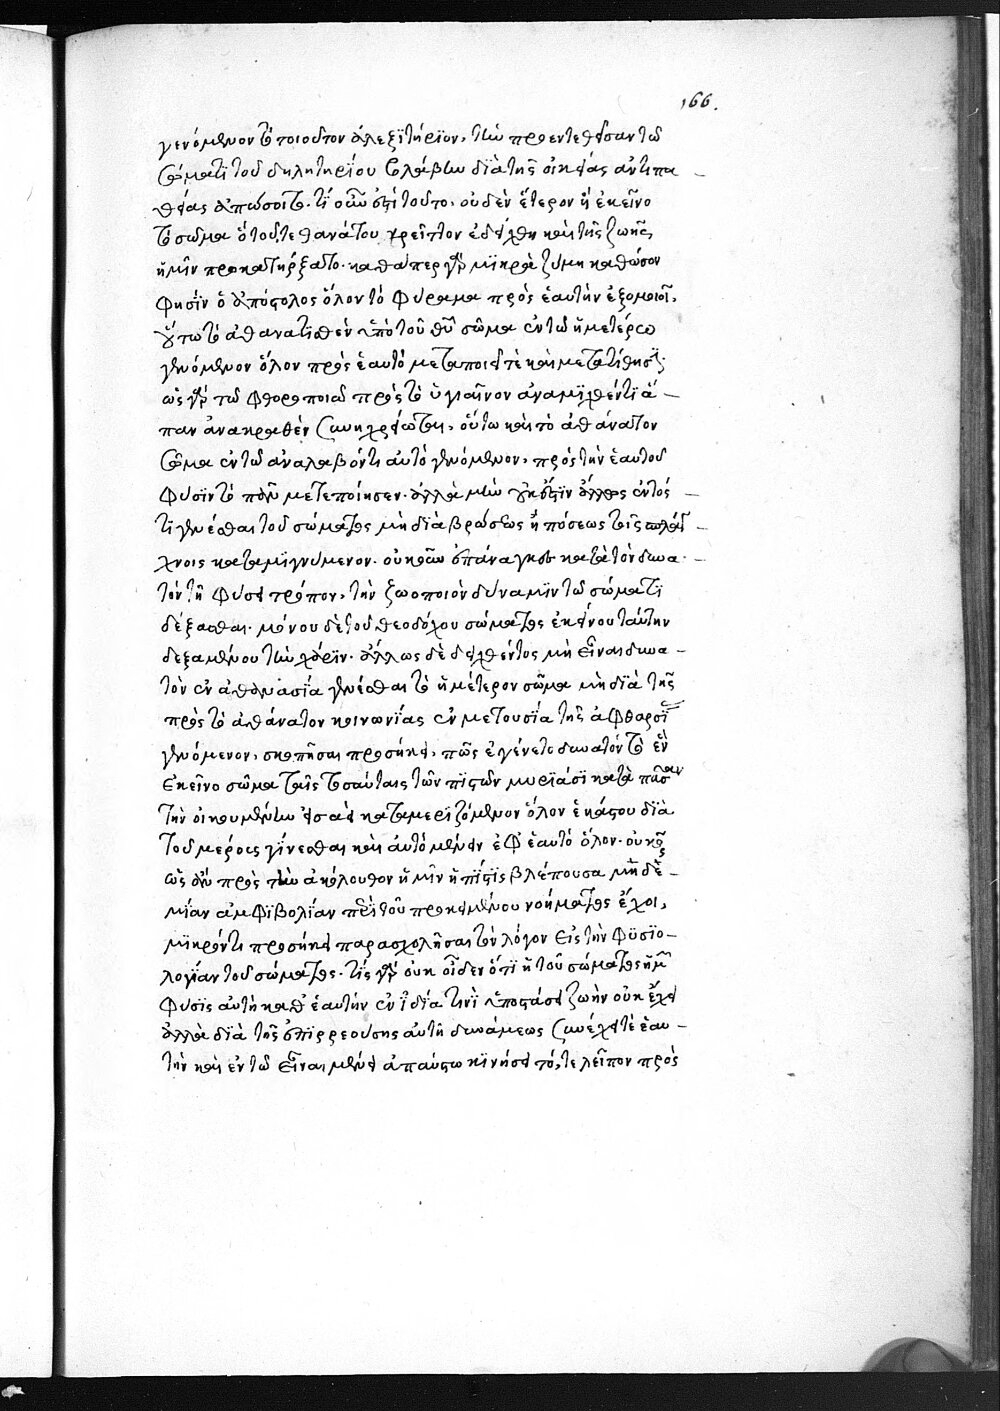 166.
γενόμενον τὸ τοιοῦτον ἀλεξϊτήρϊον, τὴν προεντεθεῖσαν τῶ
σώματι τοῦ δηλητηρίου βλάβην διὰ τῆς οἰκείας ἀντιπα
θείας ἀπώσοιτο. τί οὖν ἐστὶ τοῦτο. οὐδὲν ἕτερον ἢ ἐκεῖνο
τὸ σῶμα ὃ τοῦ τε θανάτου κρεῖττον ἐδείχθη καὶ τῆς ζωῆς
ἡμῖν προκατήρξατο. καθάπερ γὰρ μϊκρὰ ζύμη καθώς
φησὶν ὁ ἀπόστολος ὅλον τὸ φύραμα πρὸς ἑαυτὴν ἐξομοιοῖ,
οὕτω τὸ ἀθανατισθὲν ὑπὸ τοῦ θεοῦ σῶμα ἐν τῶ ἡμετέρω
γενόμενον ὅλον πρὸς ἑαυτὸ μεταποιεῖ τὲ καὶ μετατίθησϊ.
ὡς γὰρ τῶ φθοροποιῶ πρὸς τὸ ὑγιαῖνον ἀναμϊχθέντι ἅ
παν ἀνακραθὲν συνηχρείωται, οὕτω καὶ τὸ ἀθάνατον
σῶμα ἐν τῶ ἀναλαβόντι αὐτὸ γενόμενον, πρὸς τὴν ἑαυτοῦ
φύσϊν τὸ πᾶν μετεποίησεν. ἀλλὰ μὴν οὐκ ἔστϊν ἄλλως ἐντός
τϊ γενέσθαι τοῦ σώματος μὴ διὰ βρώσεως ἢ πόσεως τοῖς σπλάγ
χνοις καταμϊγνύμενον. οὐκοῦν ἐπάναγκες κατὰ τὸν δυνα
τὸν τῆ φύσει τρόπον, τὴν ζωοποιὸν δύναμϊν τῶ σώματϊ
δέξασθαι. μόνου δὲ τοῦ θεοδόχου σώματος ἐκείνου ταύτην
δεξαμένου τὴν χάρϊν. ἄλλως δὲ δειχθέντος μὴ εἶναι δυνα
τὸν ἐν ἀθανασία γενέσθαι τὸ ἡμέτερον σῶμα μὴ διὰ τῆς
πρὸς τὸ ἀθάνατον κοινωνίας ἐν μετουσία τῆς ἀφθαρσίας
γενόμενον, σκοπῆσαι προσήκει, πῶς ἐγένετο δυνατὸν τὸ ἓν
ἐκεῖνο σῶμα ταῖς τοσαύταις τῶν πϊστῶν μυρϊάσϊ κατὰ πᾶσαν
τὴν οἰκουμένην εἰσαεὶ καταμερϊζόμενον ὅλον ἑκάστου διὰ
τοῦ μέρους γίνεσθαι καὶ αὐτὸ μένειν ἐφ ἑαυτὸ ὅλον. οὐκοῦν
ὡς ἂν πρὸς τὴν ἀκόλουθον ἡμῖν ἡ πίστϊς βλέπουσα μηδὲ
μίαν ἀμφϊβολίαν περὶ τοῦ προκειμένου νοήματος ἔχοι,
μϊκρόν τι προσήκει παρασχολῆσαι τὸν λόγον εἰς τὴν φυσϊο
λογίαν τοῦ σώματος. τίς γὰρ οὐκ οἶδεν ὅτϊ ἡ τοῦ σώματος ἡμῶν
φύσϊς αὐτὴ καθ ἑαυτὴν ἐν ἰδία τινὶ ὑποστάσει ζωὴν οὐκ ἔχει
ἀλλὰ διὰ τῆς ἐπϊρρεούσης αὐτῆ δυνάμεως συνέχει τὲ ἑαυ
τὴν καὶ ἐν τῶ εἶναι μένει ἀπαύστω κϊνήσει τό, τε λεῖπον πρὸς